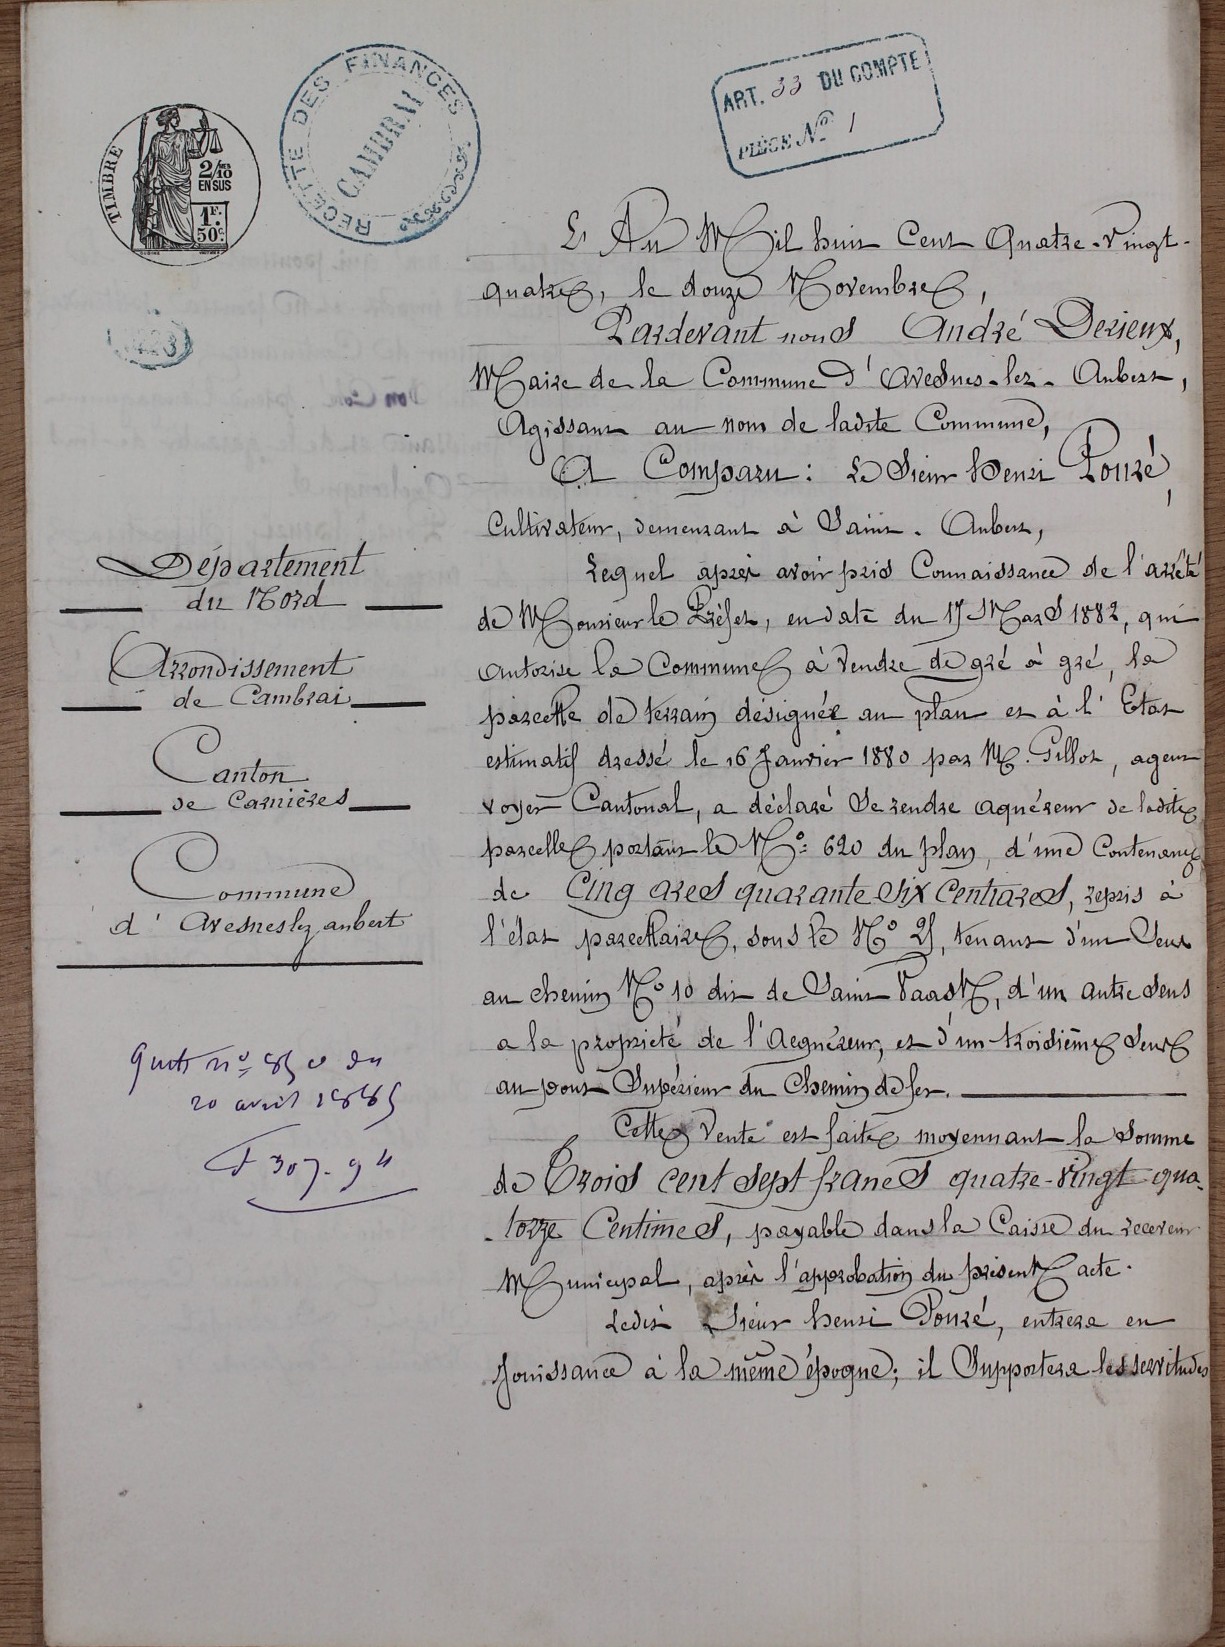 TIMBRE
2/10 EN SUS
1F. 50c.
RECETTE DES FINANCES
CAMBRAI
ART. 33 DU COMPTE
PIÈCE No 1
L'An Mil huit Cent Quatre-Vingt-
quatre, le douze Novembre,
Pardevant nous André Derieux,
Maire de la Commune d'Avesnes-lez-Aubert,
Agissant au nom de ladite Commune,
A Comparu: Le Sieur Henri Pouré,
Cultivateur, demeurant à Saint-Aubert,
Lequel après avoir pris Connaissance de l'arrêté
de Monsieur le Préfet, en date du 17 Mars 1882, qui
autorise la Commune à vendre de gré à gré, la
parcelle de terrain désignée au plan et à l'Etat
estimatif dressé le 16 Janvier 1880 par M. Gillot, agent
voyer Cantonal, a déclaré Se rendre acquéreur de ladite
parcelle portant le No 620 du plan, d'une Contenance
de Cinq ares quarante Six Centiares, repris à
l'état parcellaire, sous le No 25, tenant d'un Sens
au chemin No 10 dit de Saint Vaast, d'un autre Sens
a la propriété de l'Acquéreur, et d'un troisième Sens
au pont Supérieur du Chemin de fer.
Cette Vente est faite moyennant la Somme
de Trois cent sept francs quatre-vingt-qua-
-torze Centimes, payable dans la Caisse du receveur
Municipal, après l'approbation du présent acte.
Ledit Sieur Henri Pouré, entrera en
Jouissance à la même époque; il Supportera les servitudes
Département
du Nord
Arrondissement
de Cambrai
Canton
de Carnières
Commune
d'Avesnes lez aubert
Quitt no du
20 avril 1885
F 307.94